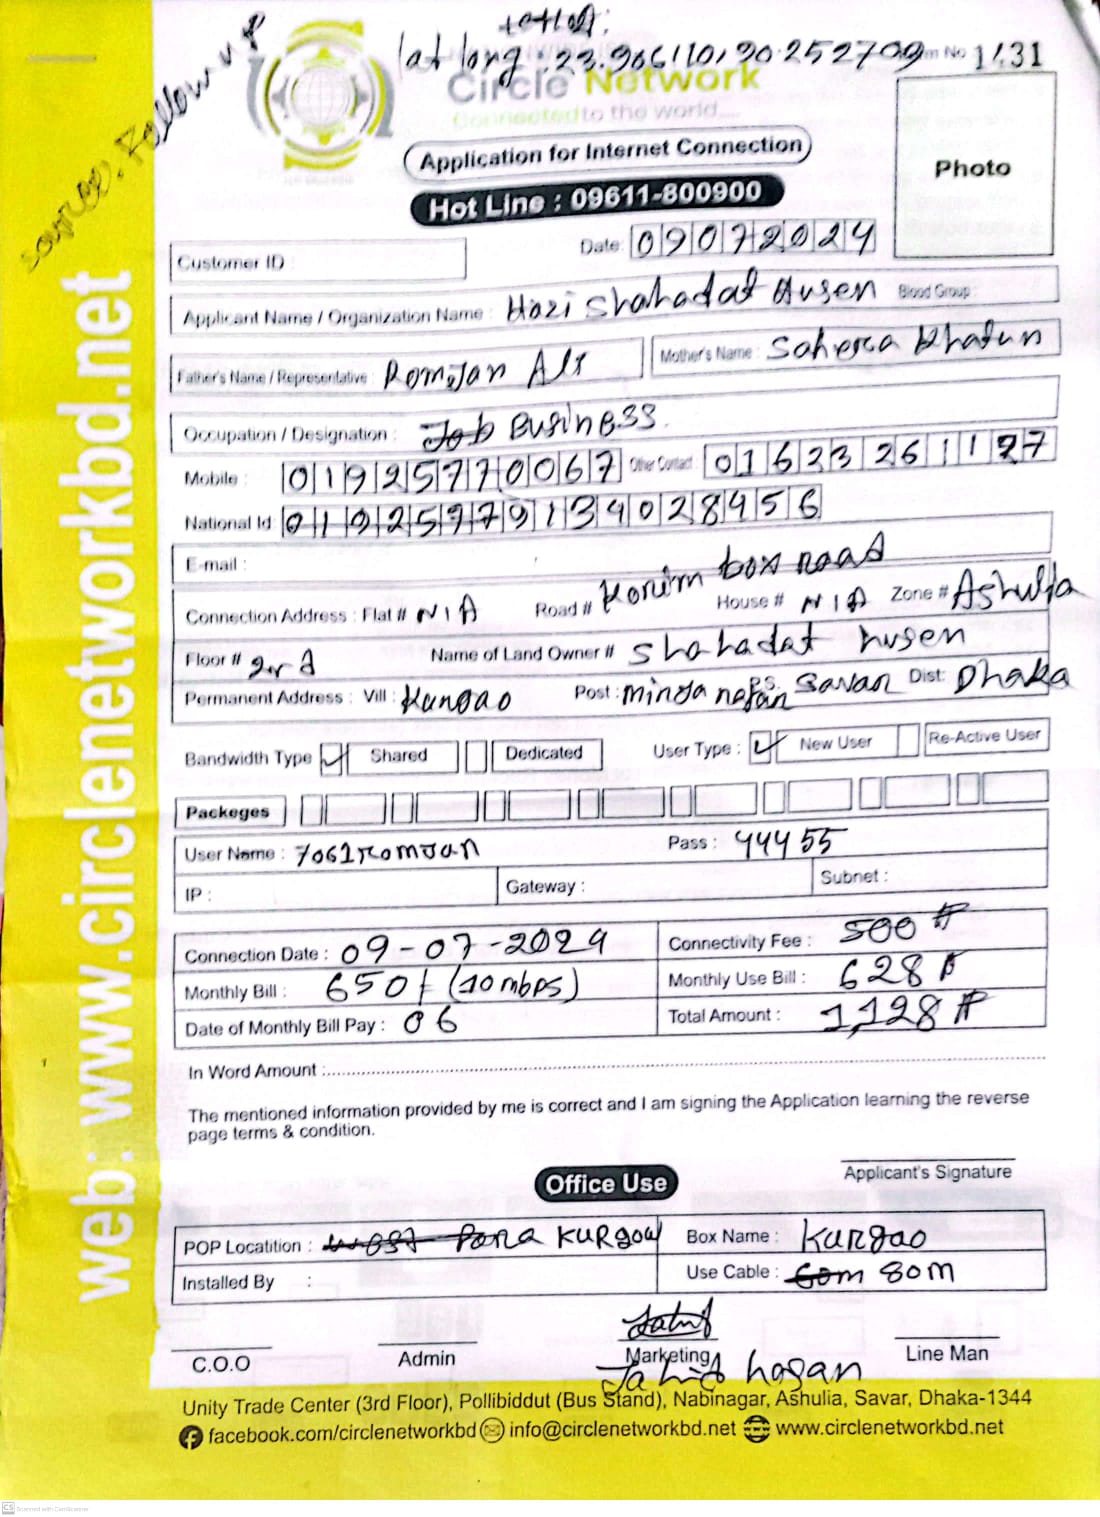 lat long : 23.906110, 90.252709
Source: Follow up
Form No 1131
Circle Network
Connected to the world....
Application for Internet Connection
Photo
Hot Line : 09611-800900
Date: 09072024
Customer ID :
Applicant Name / Organization Name : Hazi Shahadat Husen Blood Group :
Father's Name / Representative : Romjan Ali Mother's Name : Sahera Khatun
Occupation / Designation : Job Business
Mobile : 01925770067 Other Contact : 01623261127
National Id:
E-mail :
Connection Address : Flat # N/A Road # Korim box road House # N/A Zone # Ashulia
Floor # 2nd Name of Land Owner # Shahadat husen
Permanent Address : Vill : Kurgao Post : P.S. Savar Dist: Dhaka
Bandwidth Type Shared Dedicated User Type : New User Re-Active User
Packeges
User Name : 7061romjan Pass : 44455
IP : Gateway : Subnet :
Connection Date : 09-07-2024 Connectivity Fee : 500
Monthly Bill : 650/- (10mbps) Monthly Use Bill : 628
Date of Monthly Bill Pay : 06 Total Amount : 1,128
In Word Amount :
The mentioned information provided by me is correct and I am signing the Application learning the reverse
page terms & condition.
Applicant's Signature
Office Use
POP Locatition : West Para Kurgow Box Name : Kurgao
Installed By : Use Cable : 60m 80m
C.O.O Admin Marketing Line Man
Jahid hasan
Unity Trade Center (3rd Floor), Pollibiddut (Bus Stand), Nabinagar, Ashulia, Savar, Dhaka-1344
facebook.com/circlenetworkbd info@circlenetworkbd.net www.circlenetworkbd.net
web: www.circlenetworkbd.net
CS Scanned with CamScanner